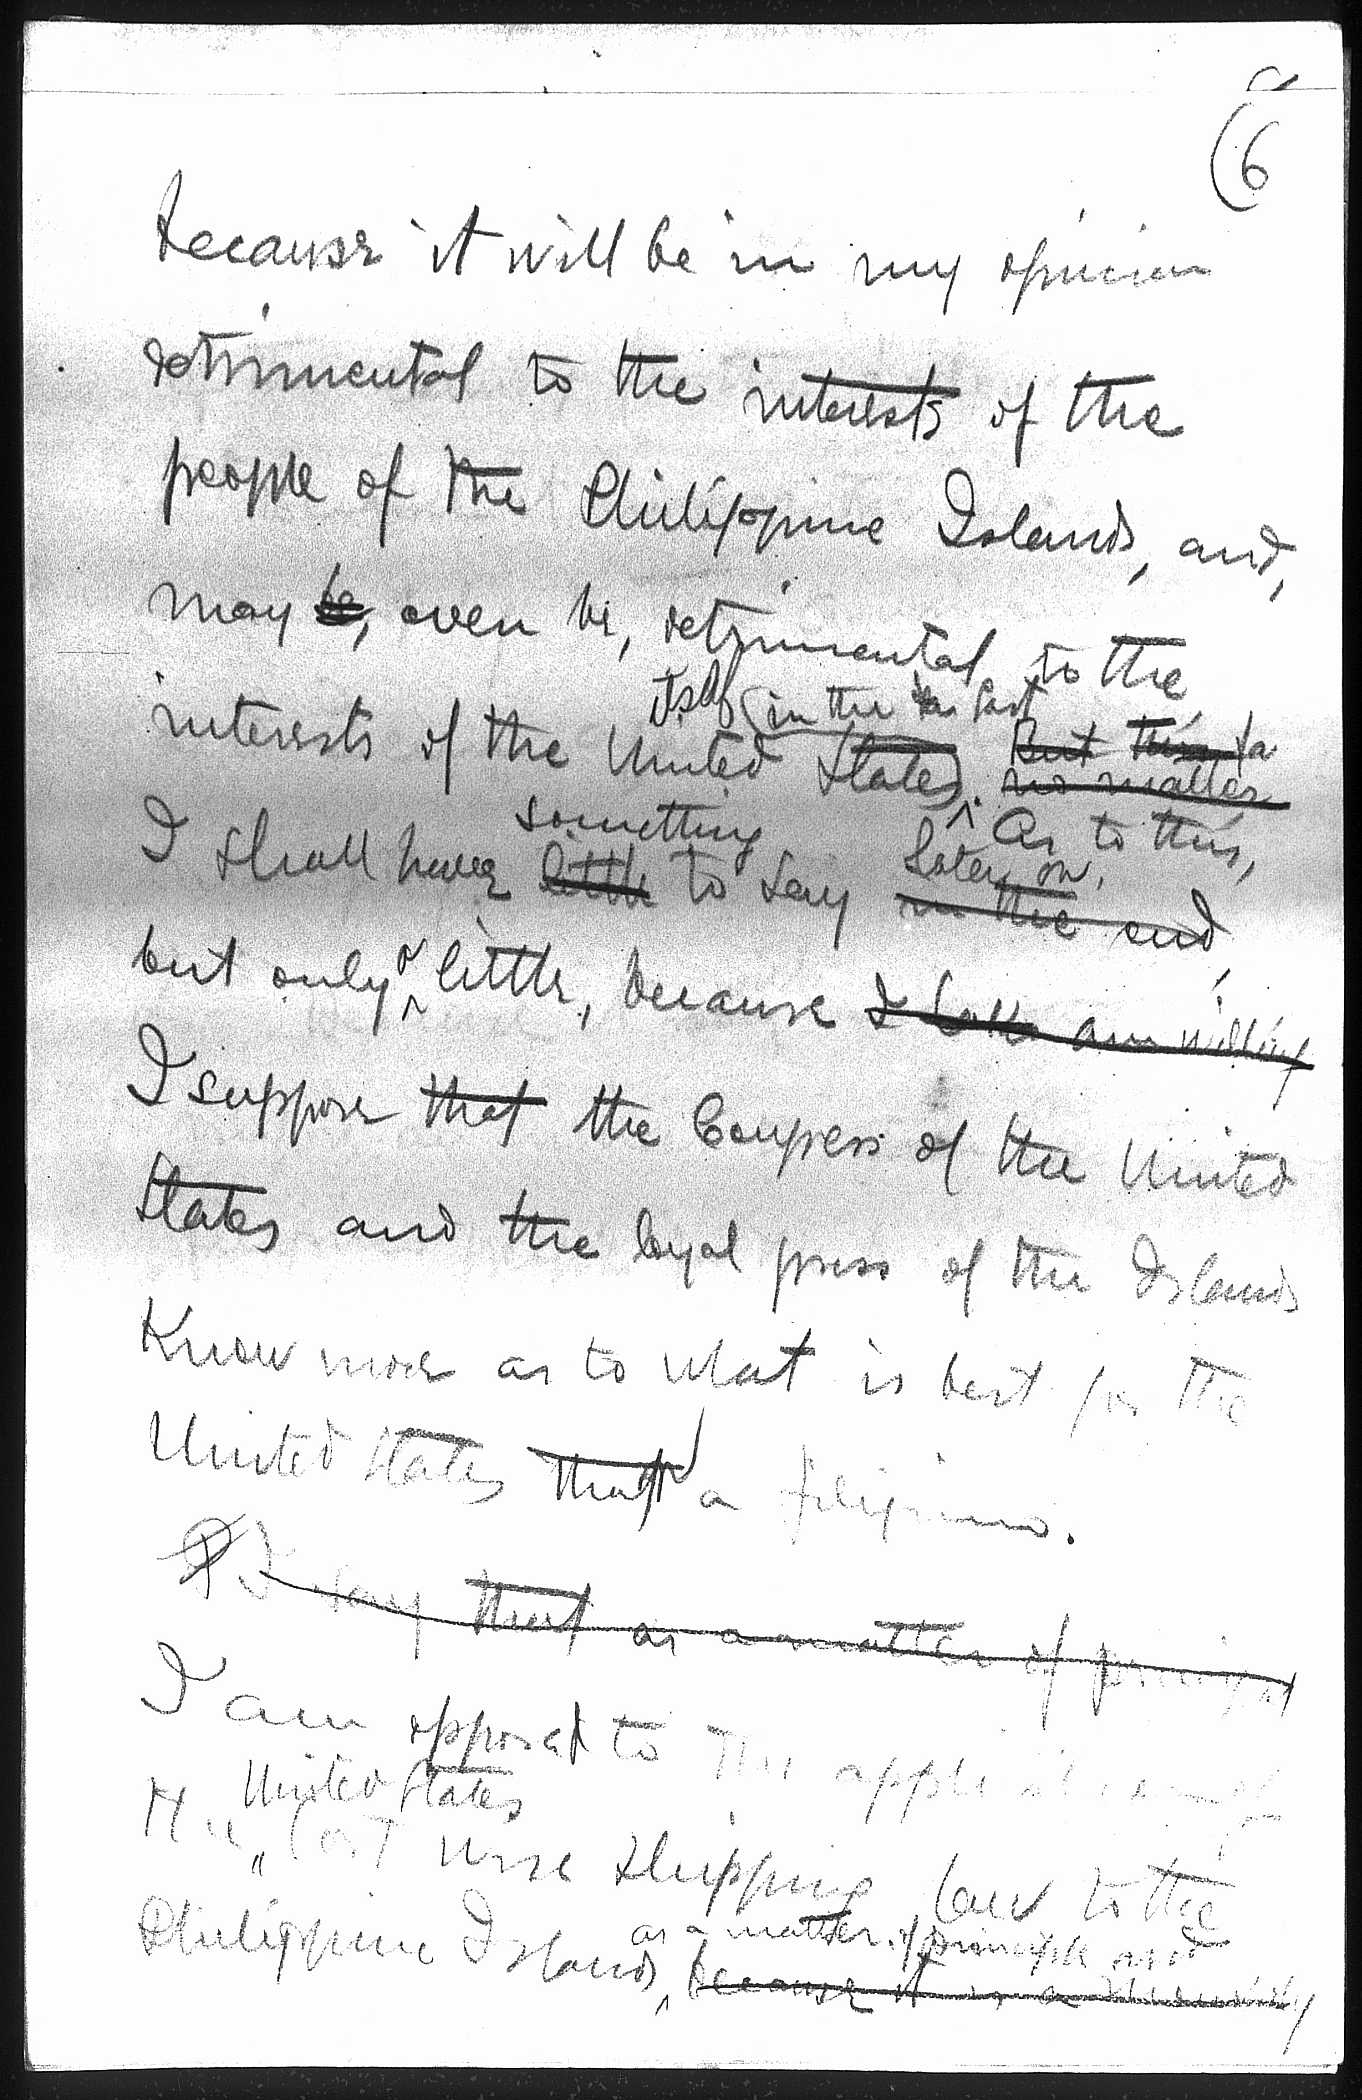 (6
because it will be in my opinion
detrimental to the interests of the
people of the Philippine Islands, and,
may be, even be, detrimental to the
itself (in the last
interests of the United States). But this
no matter
something As to this,
I shall have little to say later on,
in the end,
but only a little, because I am willing
I suppose that the Congress of the United
States and the loyal press of the Islands
Know more as to what is best for the
United States that a filipino.
I say that as a matter of principle
I am opposed to the application of
United States
the coast wise shipping law to the
as a matter of principle and
Philippine Islands, because it is a